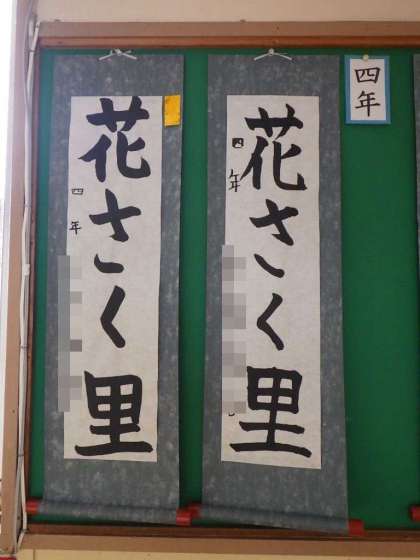 四年
花さく里
四年
花さく里
四年